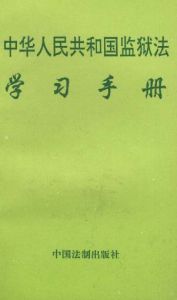 中华人民共和国监狱法
学习手册
中国法制出版社